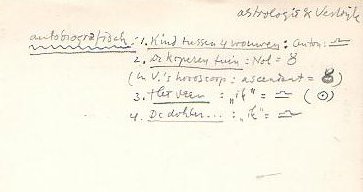 astrologie & Vestdijk
autobiografisch: 1. Kind tussen 4 vrouwen: Anton: ♎
2. De koperen tuin: Nol = ♉
(in V.'s horoscoop: ascendant = ♉)
3. Het veen: "ik" = ♎ (☉)
4. De dokter...: "ik" = ♎